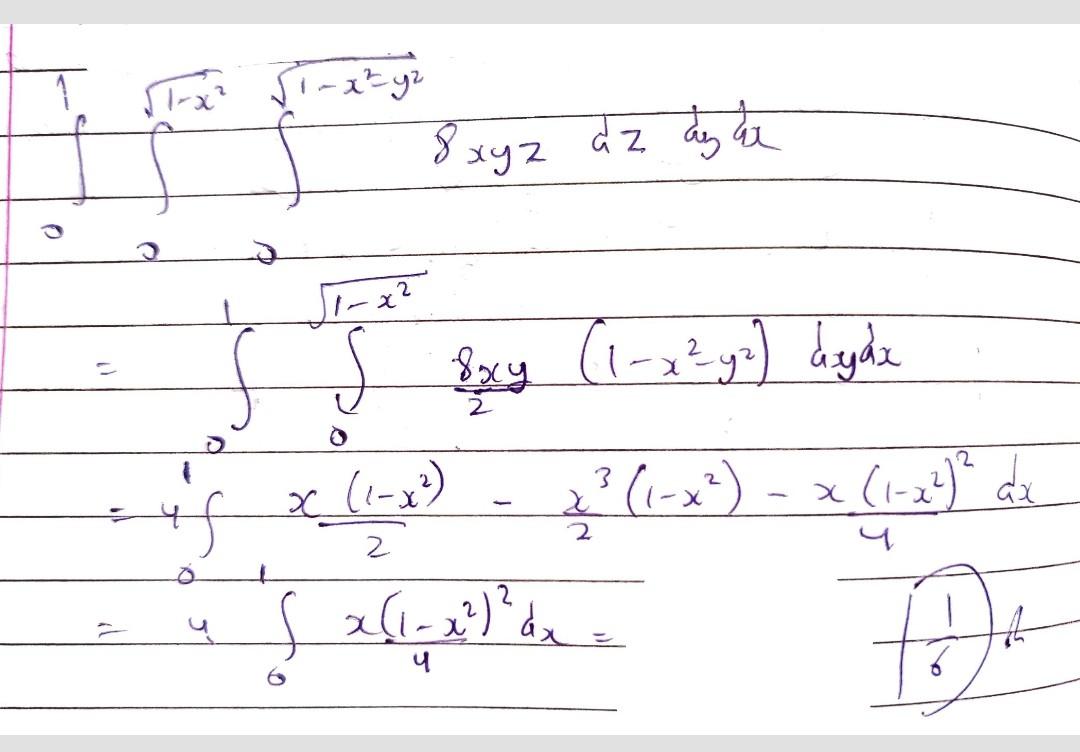 ∫₀¹ ∫₀^√(1-x²) ∫₀^√(1-x²-y²) 8xyz dz dy dx
= ∫₀¹ ∫₀^√(1-x²) 8xy/2 (1-x²-y²) dy dx
= 4 ∫₀¹ x(1-x²)/2 - x³/2 (1-x²) - x(1-x²)²/4 dx
= 4 ∫₀¹ x(1-x²)²/4 dx = 1/6